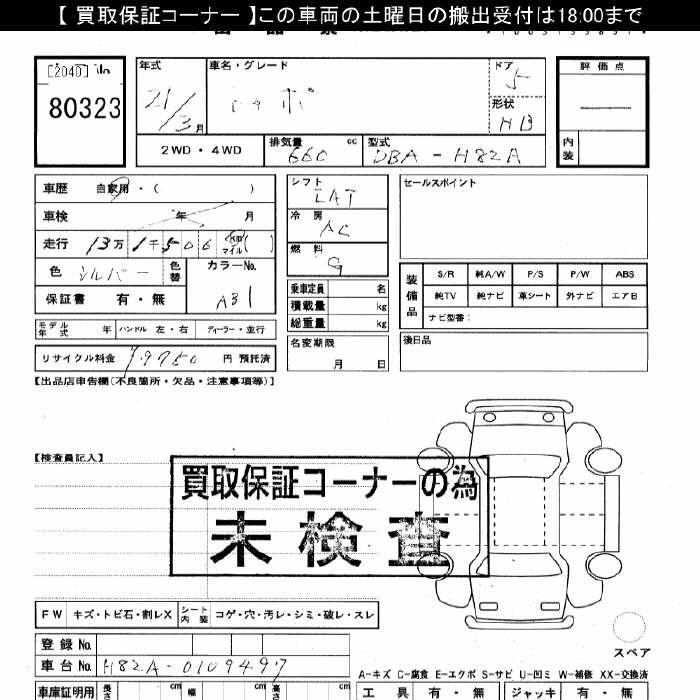 【 買取保証コーナー 】この車両の土曜日の搬出受付は18:00まで
[2040] No
80323
年式
21/3月
車名・グレード
トッポ
ドア
5
形状
HB
評価点
内装
2WD・4WD
排気量
660 cc
型式
DBA - H82A
車歴 自家用・( )
車検 年 月
走行 13万 1千506 km マイル( )
色 シルバー 色替
カラーNo.
A31
保証書 有・無
シフト
LAT
冷房
AC
燃料
G
乗車定員 名
積載量 kg
総重量 kg
セールスポイント
装備品
S/R 純A/W P/S P/W ABS
純TV 純ナビ 革シート 外ナビ エアB
ナビ型番:
モデル年式 年 ハンドル 左・右 ディーラー・並行
リサイクル料金 円 預託済
名変期限
月 日
後日品
【出品店申告欄(不良箇所・欠品・注意事項等)】
【検査員記入】
買取保証コーナーの為
未検査
FW キズ・トビ石・割レX シート内装 コゲ・穴・汚レ・シミ・破レ・スレ
スペア
登録 No.
車台 No. H82A-0109497
A-キズ C-腐食 E-エクボ S-サビ U-凹ミ W-補修 XX-交換済
車庫証明用 長さ cm 幅 cm 高さ cm
工具 有・無 ジャッキ 有・無